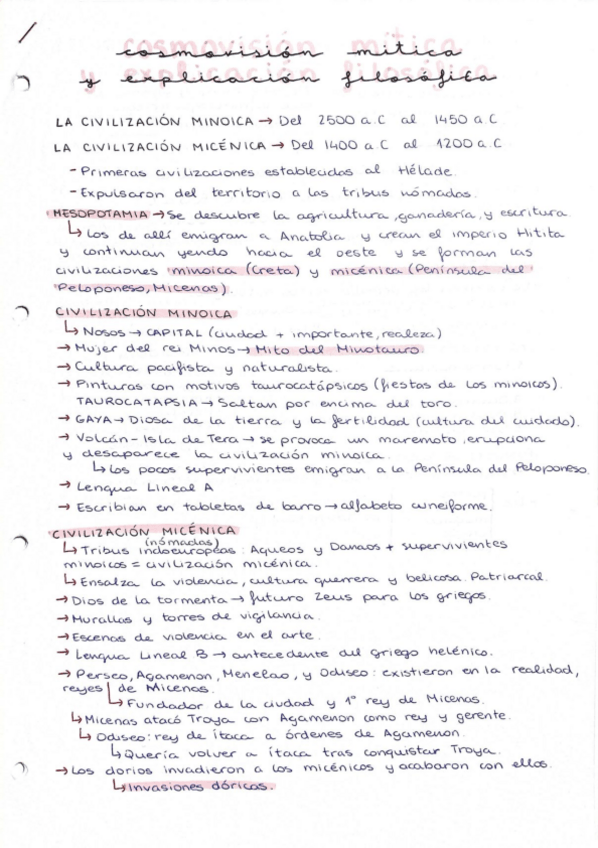 cosmovisión mítica
y explicación filosófica
LA CIVILIZACIÓN MINOICA → Del 2500 a.C al 1450 a.C
LA CIVILIZACIÓN MICÉNICA → Del 1400 a.C al 1200 a.C
- Primeras civilizaciones establecidas al Hélade.
- Expulsaron del territorio a las tribus nómadas.
MESOPOTAMIA → Se descubre la agricultura, ganadería, y escritura
↳ Los de allí emigran a Anatolia y crean el imperio Hitita
y continuan yendo hacia el oeste y se forman las
civilizaciones minoica (Creta) y micénica (Península del
Peloponeso, Micenas).
CIVILIZACIÓN MINOICA
↳ Nosos → CAPITAL (ciudad + importante, realeza)
→ Mujer del rei Minos → Mito del Minotauro
→ Cultura pacifista y naturalista.
→ Pinturas con motivos taurocatápsicos (fiestas de los minoicos).
TAUROCATAPSIA → Saltan por encima del toro.
→ GAYA → Diosa de la tierra y la fertilidad (cultura del cuidado).
→ Volcán - Isla de Tera → se provoca un maremoto, erupciona
y desaparece la civilización minoica.
↳ Los pocos supervivientes emigran a la Península del Peloponeso.
→ Lengua Lineal A
→ Escribian en tabletas de barro → alfabeto cuneiforme.
CIVILIZACIÓN MICÉNICA
(nómadas)
↳ Tribus indoeuropeas: Aqueos y Danaos + supervivientes
minoicos = civilización micénica.
↳ Ensalza la violencia, cultura guerrera y belicosa. Patriarcal.
→ Dios de la tormenta → futuro Zeus para los griegos.
→ Murallas y torres de vigilancia.
→ Escenas de violencia en el arte.
→ Lengua Lineal B → antecedente del griego helénico.
→ Perseo, Agamenon, Menelao, y Odiseo: existieron en la realidad,
reyes de Micenas.
↳ Fundador de la ciudad y 1º rey de Micenas.
↳ Micenas atacó Troya con Agamenon como rey y gerente.
↳ Odiseo: rey de ítaca a órdenes de Agamenon.
↳ Quería volver a ítaca tras conquistar Troya.
→ Los dorios invadieron a los micénicos y acabaron con ellos.
↳ Invasiones dóricas.